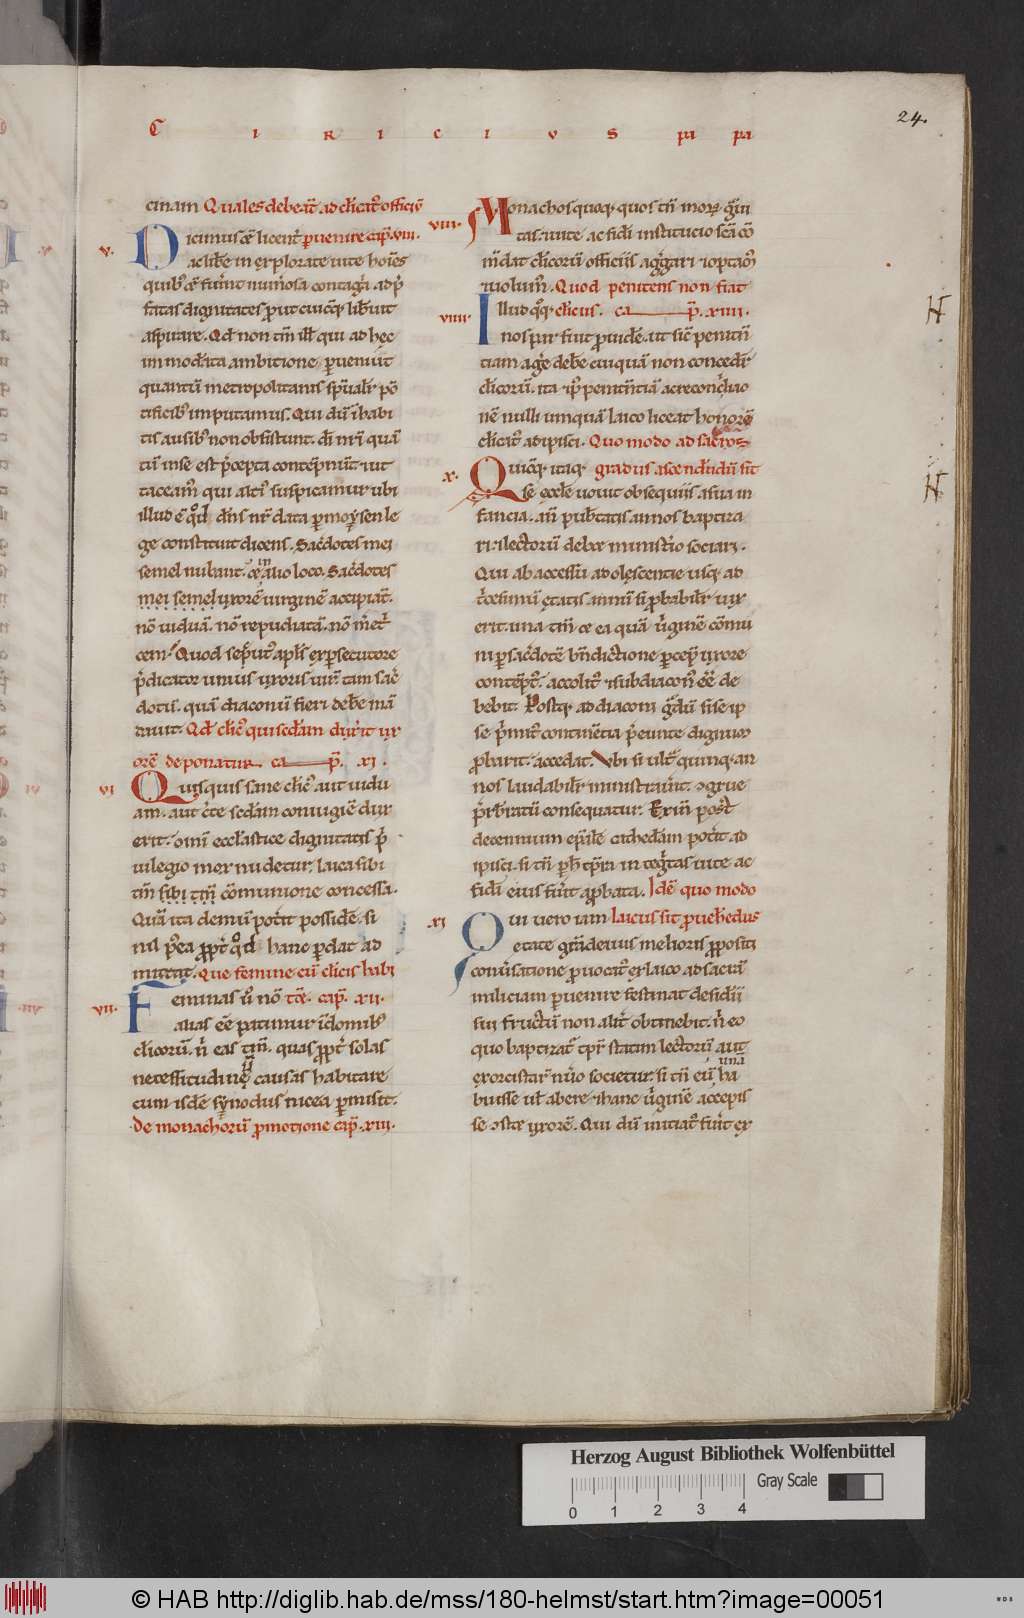 24.
C I R I C I V S pa pa
cinam Quales debeāt ad clicat᷒ officiū
v. Dicimus ēē licent̄ puenire cap̄. viii.
ac lib̄e in explorate uite hoīēs
quib᷒ ēē fuer̄int num̄osa coniugia ad p̄
fatas dignitates put cuicūq; libuit
aspirare. Qd̄ non tm̄ illī qui ad hec
immod̄ata ambitione pueniūt
quantū metropolitanis sp̄ualit̄ pō
tificib᷒ imputamus. Qui dū īhibi
tis ausib᷒ non obsistunt. dī nr̄i quā
tū in se est p̄cepta contēpnūt. ut
taceam᷒ qui alti᷒ suspicamur ubi
illud ē qd̄ dn̄s nr̄ data p moysen le
ge constituit dicens. Sac̄dotes mei
semel nubant. ēē in alio loco. Sac̄dotes
mei semel uxorē uirginē accipiāt.
nō uiduā. nō repudiatā. nō m̄et̄
cem. Quod seq̄ut᷒ apl̄s ex psecutore
p̄dicator unius uxoris uir̄ tam sac̄
dotē. quā diaconū fieri deb̄e mā
dauit. Qd̄ cl̄ic᷒ qui sedam duxit ux
orē deponatur ca p̄. xi.
vi Quisquis sane cl̄ic᷒ aut uidu
am. aut c̄te sedam coniugiē dux
erit. omī eccl̄astice dignitatis p̄
uilegio mox nudetur. laica sibi
tm̄ sibi tm̄ cōmunione concessa.
Quā ita demū pot̄it possidē. si
nil p̄ea ppt̄ qd̄ hanc pdat ad
mittat. Que femine cū cl̄icis habi
vii. Feminas u᷒ nō tēt. cap̄. xii.
alias ēē patimur ī domib᷒
cl̄icorū. n̄ eas tm̄. quas ppt̄ solas
necessitudinū causas habitare
cum isdē synodus nicea pmisit.
de monachorū pmotione cap̄. xiii.
viii. Monachos quoq; quos tn̄ mor̄ ḡui
tas. uite ac fidī institucio sc̄a cō
m̄dat cl̄icorū officiis agḡari ⁊ optam᷒
⁊ uolum᷒. Quod penitens non fiat
viiii. Illud qq; cl̄icus. ca p̄. xiiii.
nos par fuit puidē. ut sic̄ penitn̄
tiam aḡe deb̄e cuiquā non concedit̄
cl̄icorū. ita ⁊ p᷒ penitn̄tiā ac recon̄ciliatio
nē nulli umquā laico liceat honorē
cl̄icat᷒ adipisci. Quo modo ad sacros
x. Quicūq; itaq; gradus ascend̄ndū sit
se eccl̄e uouit obsequiis a sua in
fancia. an̄ pub̄tatis annos baptiza
ri. ⁊ lectorū debet minist̄io sociari.
Qui ab accessu adolescentie usq; ad
t̄cesimū etatis annū si pbabilit̄ uix
erit. una tm̄ ēē ea quā u̇ginē cōmu
ni p sac̄dotē bn̄dictione pcep̄ uxore
contēpt᷒. accolit᷒ ⁊ subdiacon᷒ ēē de
bebit. Postq; ad diaconi ḡdū si se ip
se p̄mit᷒ continētia p̄eunte dignū
pbarit. accedat. Vbi si ult̄ quinq; an
nos laudabilit̄ ministrau̇it. ↄgrue
p̄sb̄ratū consequatur. Exin᷒ post
decennium ep̄ale cathedam pot̄it ad
ipisci. si tn̄ p h᷒ tp̄ra inteḡtas uite ac
fidī eius fuit apbata. Idē quo modo
xi Qui uero iam laicus sit puehēdus
etate grādeuus melioris ppositi
conu̇satione puocat᷒ ex laico ad sacrā
miliciam puenire festinat desidīi
sui fructū non alit̄ obtinebit. n̄ eo
quo baptizat᷒ tp̄r statim lectorū aut
exorcistar̄ nu̇o societur. si tn̄ eū unā ha
buisse ul᷒ abere ⁊ hanc u̇ginē accepis
se ↄstet uxorē. Qui dū iniciat᷒ fuit ex
H
H
Herzog August Bibliothek Wolfenbüttel
Gray Scale
0 1 2 3 4
© HAB http://diglib.hab.de/mss/180-helmst/start.htm?image=00051